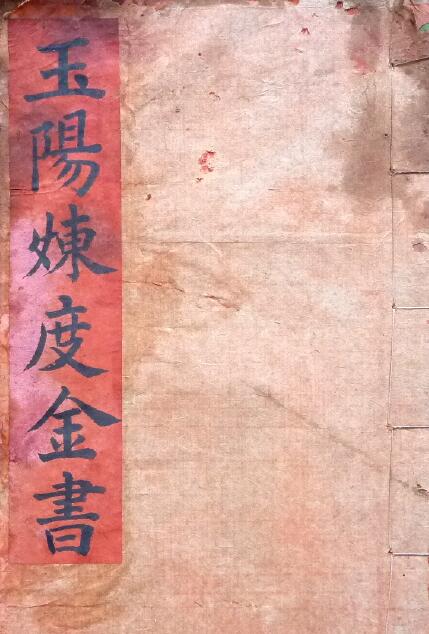 玉陽煉度金書